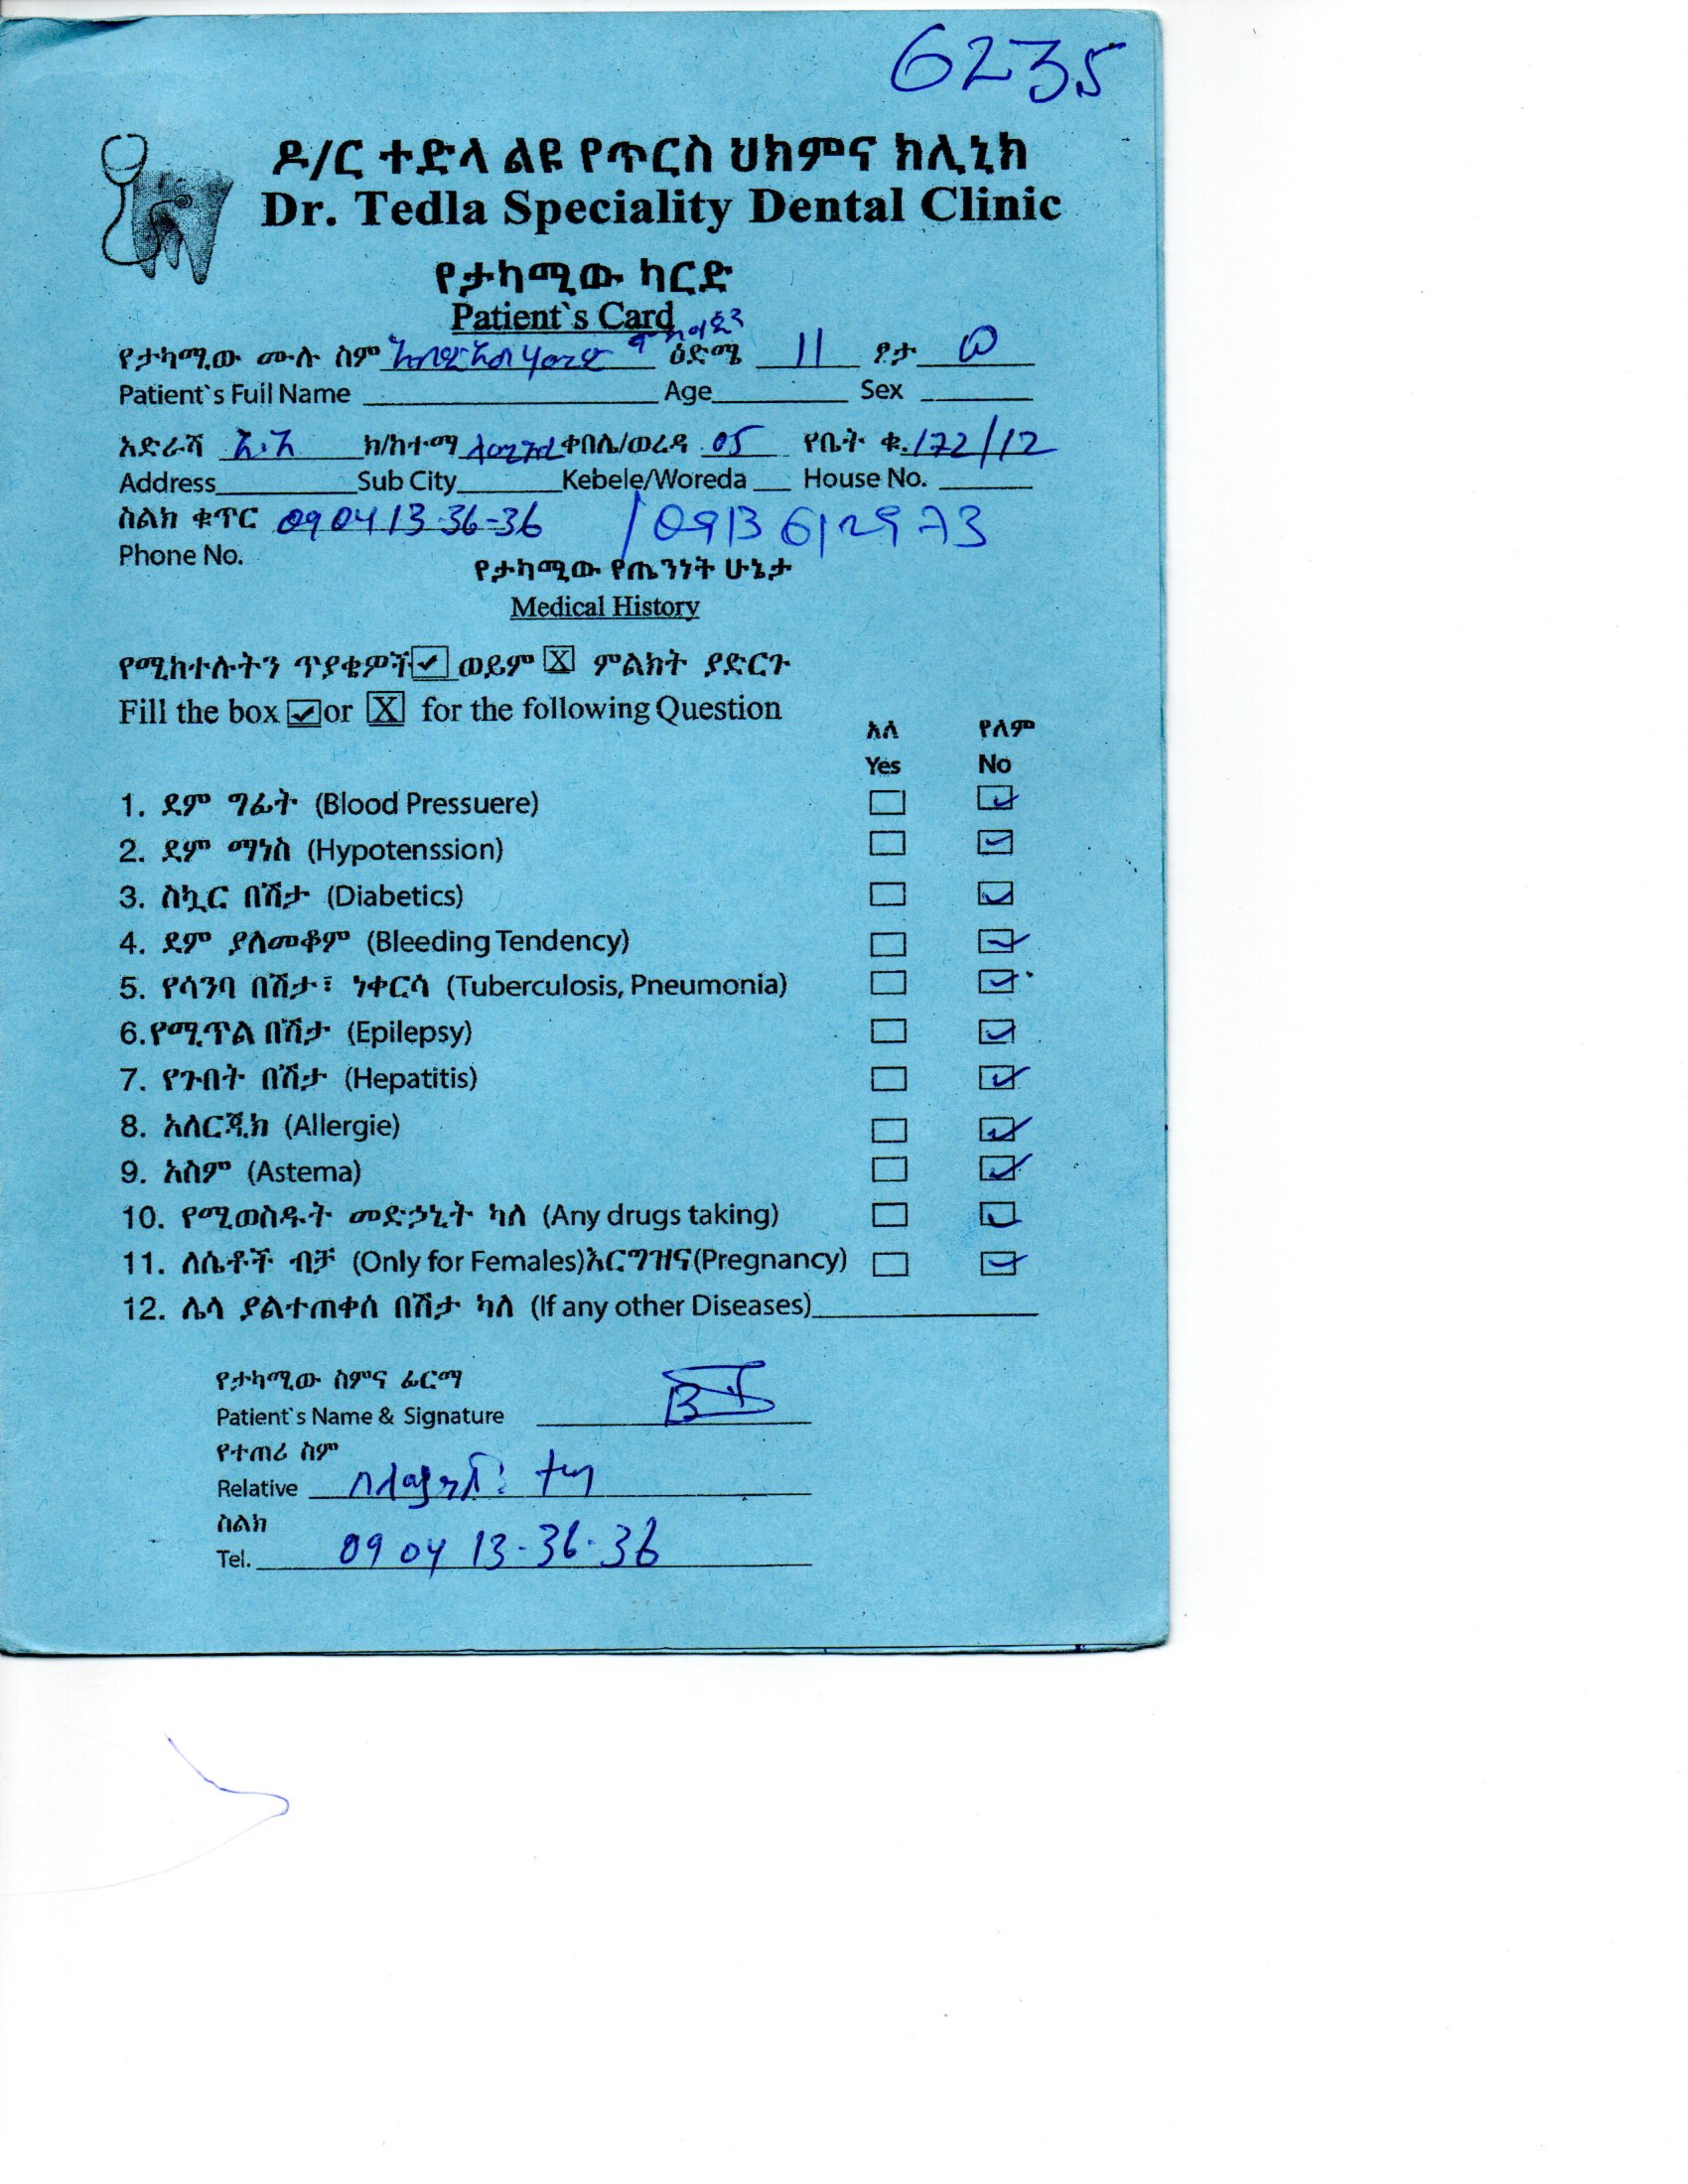 6235
ዶ/ር ተድላ ልዩ የጥርስ ህክምና ክሊኒክ
Dr. Tedla Speciality Dental Clinic
የታካሚው ካርድ
Patient`s Card
የታካሚው ሙሉ ስም ዕድሜ 11 ፆታ ወ
Patient`s Full Name Age Sex
አድራሻ አ.አ ክ/ከተማ ቀበሌ/ወረዳ 05 የቤት ቁ. 172/12
Address Sub City Kebele/Woreda House No.
ስልክ ቁጥር 09 04 13-36-36 / 0913 612973
Phone No.
የታካሚው የጤንነት ሁኔታ
Medical History
የሚከተሉትን ጥያቄዎች ✓ ወይም X ምልክት ያድርጉ
Fill the box ✓ or X for the following Question
አለ የለም
Yes No
1. ደም ግፊት (Blood Pressuere) ✓
2. ደም ማነስ (Hypotenssion) ✓
3. ስኳር በሽታ (Diabetics) ✓
4. ደም ያለመቆም (Bleeding Tendency) ✓
5. የሳንባ በሽታ፣ ነቀርሳ (Tuberculosis, Pneumonia) ✓
6.የሚጥል በሽታ (Epilepsy) ✓
7. የጉበት በሽታ (Hepatitis) ✓
8. አለርጂክ (Allergie) ✓
9. አስም (Astema) ✓
10. የሚወስዱት መድኃኒት ካለ (Any drugs taking) ✓
11. ለሴቶች ብቻ (Only for Females)እርግዝና(Pregnancy) ✓
12. ሌላ ያልተጠቀሰ በሽታ ካለ (If any other Diseases)
የታካሚው ስምና ፊርማ
Patient`s Name & Signature
የተጠሪ ስም
Relative
ስልክ
Tel. 09 04 13-36-36